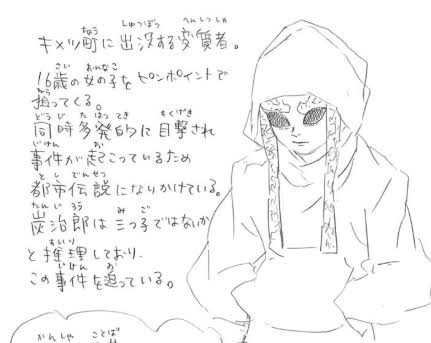 キメツ町に出没する変質者。
16歳の女の子をピンポイントで
狙ってくる。
同時多発的に目撃され
事件が起こっているため
都市伝説になりかけている。
炭治郎は三つ子ではないか
と推理しており、
この事件を追っている。
かんしゃ ことば